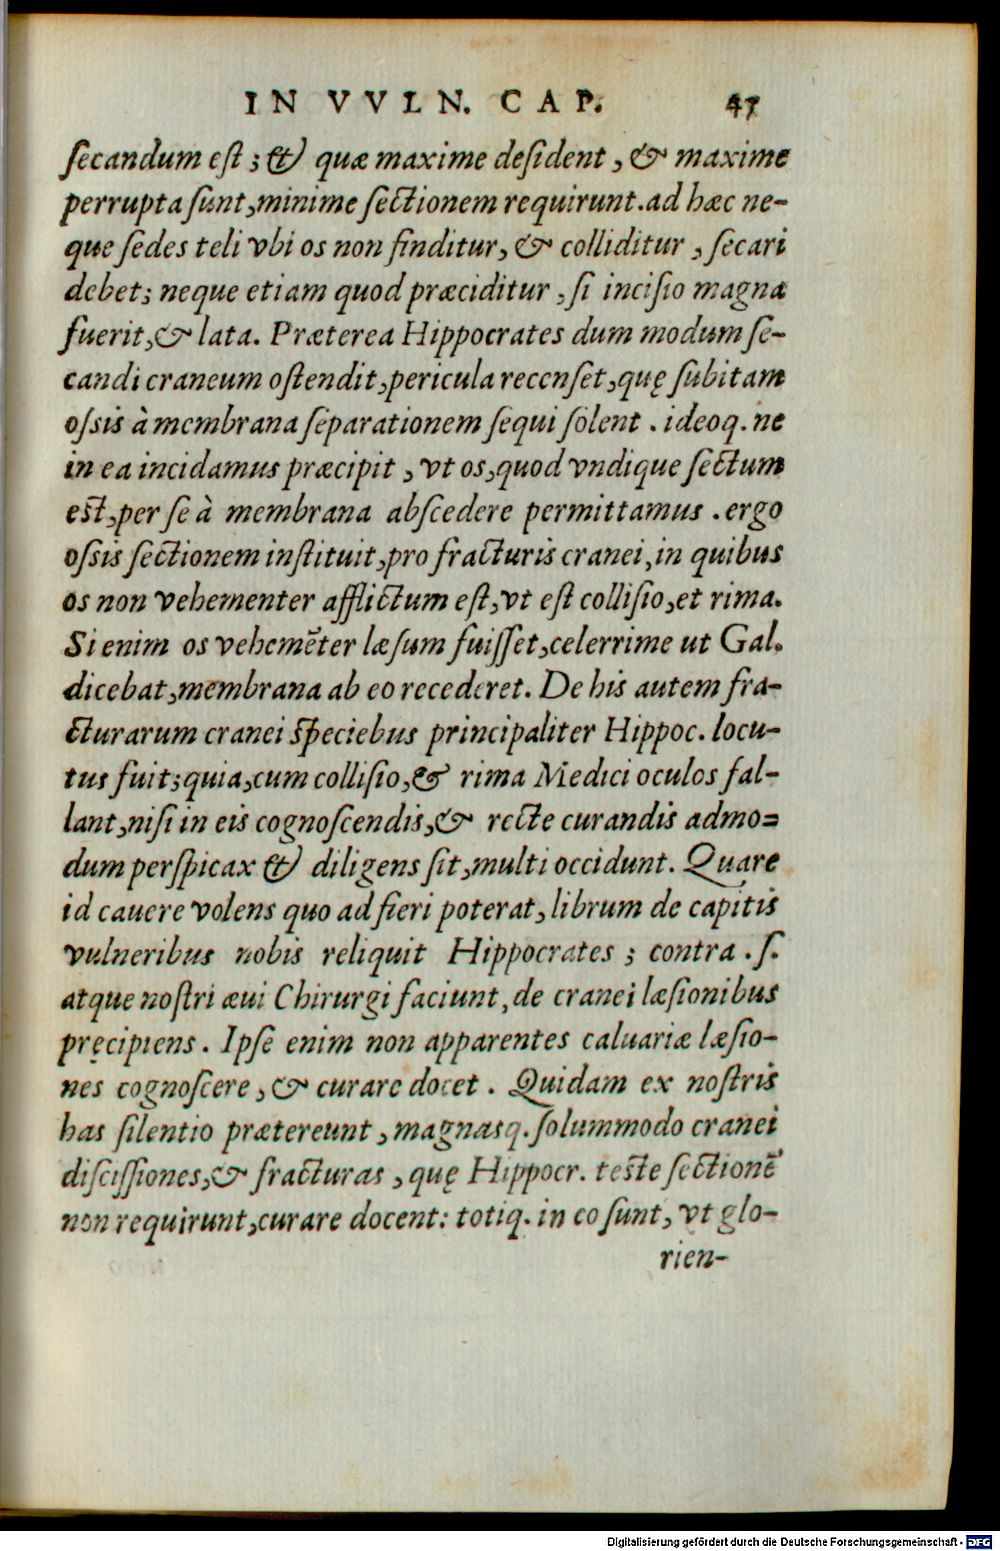 IN VVLN. CAP. 47
ſecandum eſt ; & quæ maxime deſident , & maxime
perrupta ſunt, minime ſectionem requirunt. ad hæc ne-
que ſedes teli vbi os non finditur, & colliditur , ſecari
debet; neque etiam quod præciditur , ſi inciſio magna
fuerit, & lata. Præterea Hippocrates dum modum ſe-
candi craneum oſtendit, pericula recenſet, quę ſubitam
oſsis à membrana ſeparationem ſequi ſolent . ideoq. ne
in ea incidamus præcipit , vt os, quod vndique ſectum
eſt, per ſe à membrana abſcedere permittamus . ergo
oſsis ſectionem inſtituit, pro fracturis cranei, in quibus
os non vehementer afflictum eſt, vt eſt colliſio, et rima.
Si enim os vehemēter læſum fuiſſet, celerrime ut Gal.
dicebat, membrana ab eo recederet. De his autem fra-
cturarum cranei ſpeciebus principaliter Hippoc. locu-
tus fuit; quia, cum colliſio, & rima Medici oculos fal-
lant, niſi in eis cognoſcendis, & recte curandis admo=
dum perſpicax & diligens ſit, multi occidunt. Quare
id cauere volens quo ad fieri poterat, librum de capitis
vulneribus nobis reliquit Hippocrates ; contra . ſ.
atque noſtri æui Chirurgi faciunt, de cranei læſionibus
pręcipiens . Ipſe enim non apparentes caluariæ læſio-
nes cognoſcere , & curare docet . Quidam ex noſtris
has ſilentio prætereunt , magnasq. ſolummodo cranei
diſciſſiones, & fracturas , quę Hippocr. teſte ſectionē
non requirunt, curare docent: totiq. in eo ſunt, vt glo-
rien-
Digitalisierung gefördert durch die Deutsche Forschungsgemeinschaft - DFG